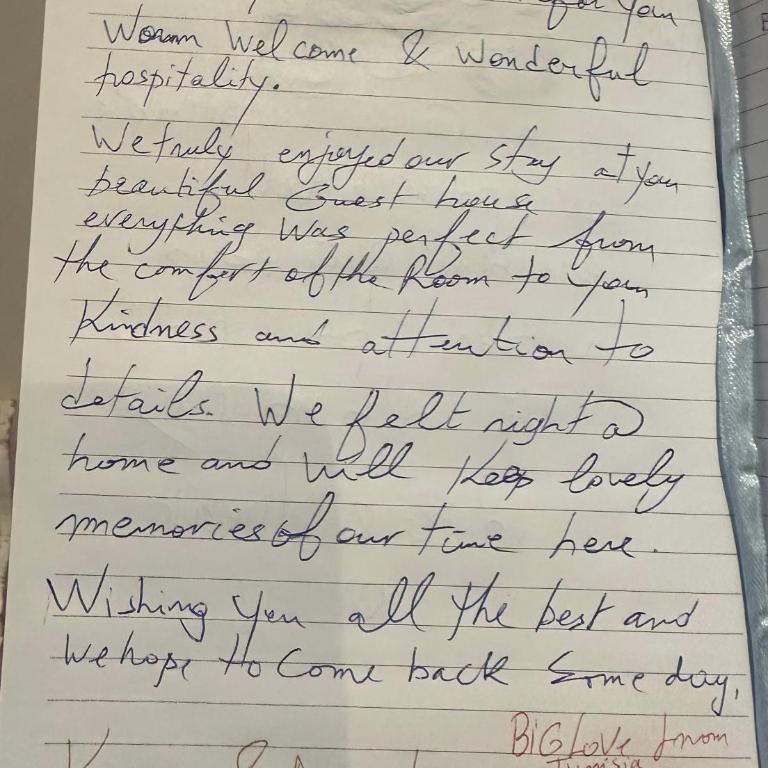 for your
Warm Welcome & Wonderful
hospitality.
We truly enjoyed our stay at your
beautiful Guest house
everything was perfect from
the comfort of the Room to your
Kindness and attention to
details. We felt right @
home and will keep lovely
memories of our time here.
Wishing you all the best and
We hope to come back some day,
BiG Love from
Tunisia